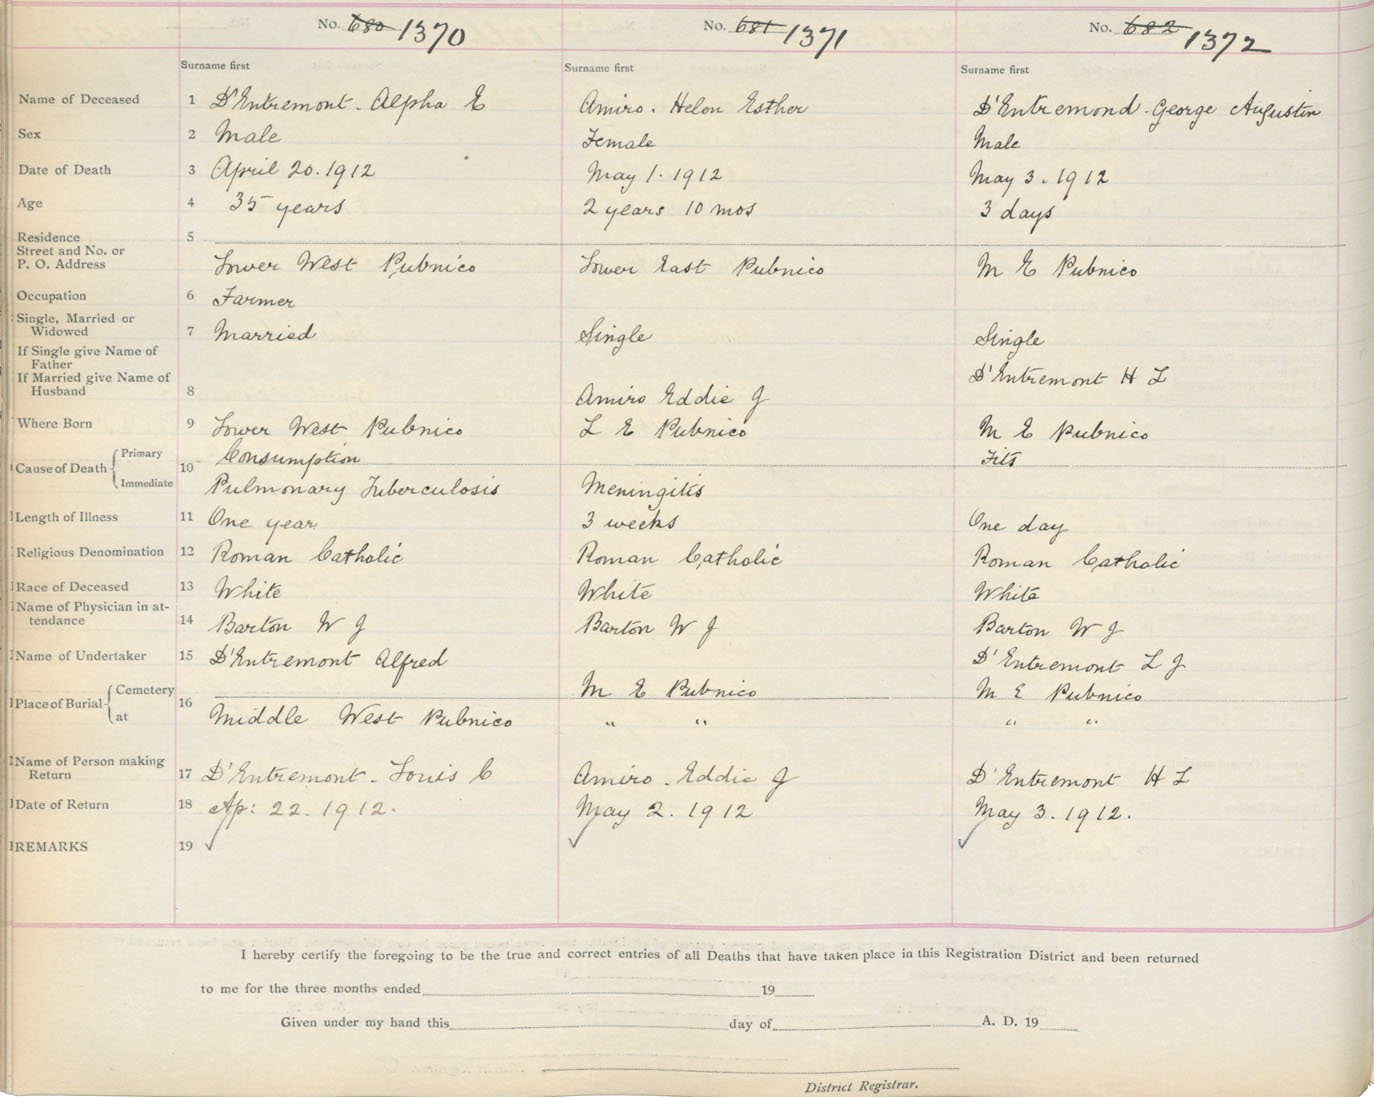 No. 680 1370 No. 681 1371 No. 682 1372
Surname first Surname first Surname first
Name of Deceased 1 D'Entremont. Alpha E Amiro. Helon Esther D'Entremond. George Augustin
Sex 2 Male Female Male
Date of Death 3 April 20. 1912 May 1. 1912 May 3. 1912
Age 4 35 years 2 years 10 mos 3 days
Residence 5
Street and No. or
P. O. Address Lower West Pubnico Lower East Pubnico M E Pubnico
Occupation 6 Farmer
Single, Married or
Widowed 7 Married Single Single
If Single give Name of
Father
If Married give Name of D'Entremont H L
Husband 8 Amiro Eddie J
Where Born 9 Lower West Pubnico L E Pubnico M E Pubnico
Primary Consumption Fits
Cause of Death 10
Immediate Pulmonary Tuberculosis Meningitis
Length of Illness 11 One year 3 weeks One day
Religious Denomination 12 Roman Catholic Roman Catholic Roman Catholic
Race of Deceased 13 White White White
Name of Physician in at-
tendance 14 Barton W J Barton W J Barton W J
Name of Undertaker 15 D'Entremont Alfred D'Entremont L J
Cemetery M E Pubnico M E Pubnico
Place of Burial 16
at Middle West Pubnico " " " "
Name of Person making
Return 17 D'Entremont. Louis C Amiro. Eddie J D'Entremont H L
Date of Return 18 Ap: 22. 1912. May 2. 1912 May 3. 1912.
REMARKS 19 ✓ ✓ ✓
I hereby certify the foregoing to be the true and correct entries of all Deaths that have taken place in this Registration District and been returned
to me for the three months ended 19
Given under my hand this day of A. D. 19
District Registrar.